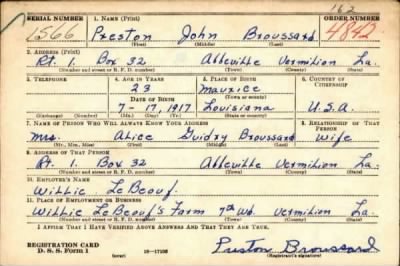 162
SERIAL NUMBER 1. NAME (Print) ORDER NUMBER
1566 Preston John Broussard 4842
(First) (Middle) (Last)
2. ADDRESS (Print)
Rt. 1. Box 32 Abbeville Vermilion La.
(Number and street or R. F. D. number) (Town) (County) (State)
3. TELEPHONE 4. AGE IN YEARS 5. PLACE OF BIRTH 6. COUNTRY OF CITIZENSHIP
23 Maurice
(Town or county)
DATE OF BIRTH
7-17,1917 Louisiana U.S.A.
(Exchange) (Number) (Mo.) (Day) (Yr.) (State or country)
7. NAME OF PERSON WHO WILL ALWAYS KNOW YOUR ADDRESS 8. RELATIONSHIP OF THAT PERSON
Mrs. Alice Guidry Broussard Wife
(Mr., Mrs., Miss) (First) (Middle) (Last)
9. ADDRESS OF THAT PERSON
Rt. 1. Box 32 Abbeville Vermilion La.
(Number and street or R. F. D. number) (Town) (County) (State)
10. EMPLOYER'S NAME
Willie LeBeouf.
11. PLACE OF EMPLOYMENT OR BUSINESS
Willie LeBeouf's Farm 7th Wd. Vermilion La.
(Number and street or R. F. D. number) (Town) (County) (State)
I AFFIRM THAT I HAVE VERIFIED ABOVE ANSWERS AND THAT THEY ARE TRUE.
REGISTRATION CARD
D. S. S. Form 1 (over) 16—17105 Preston Broussard
(Registrant's signature)